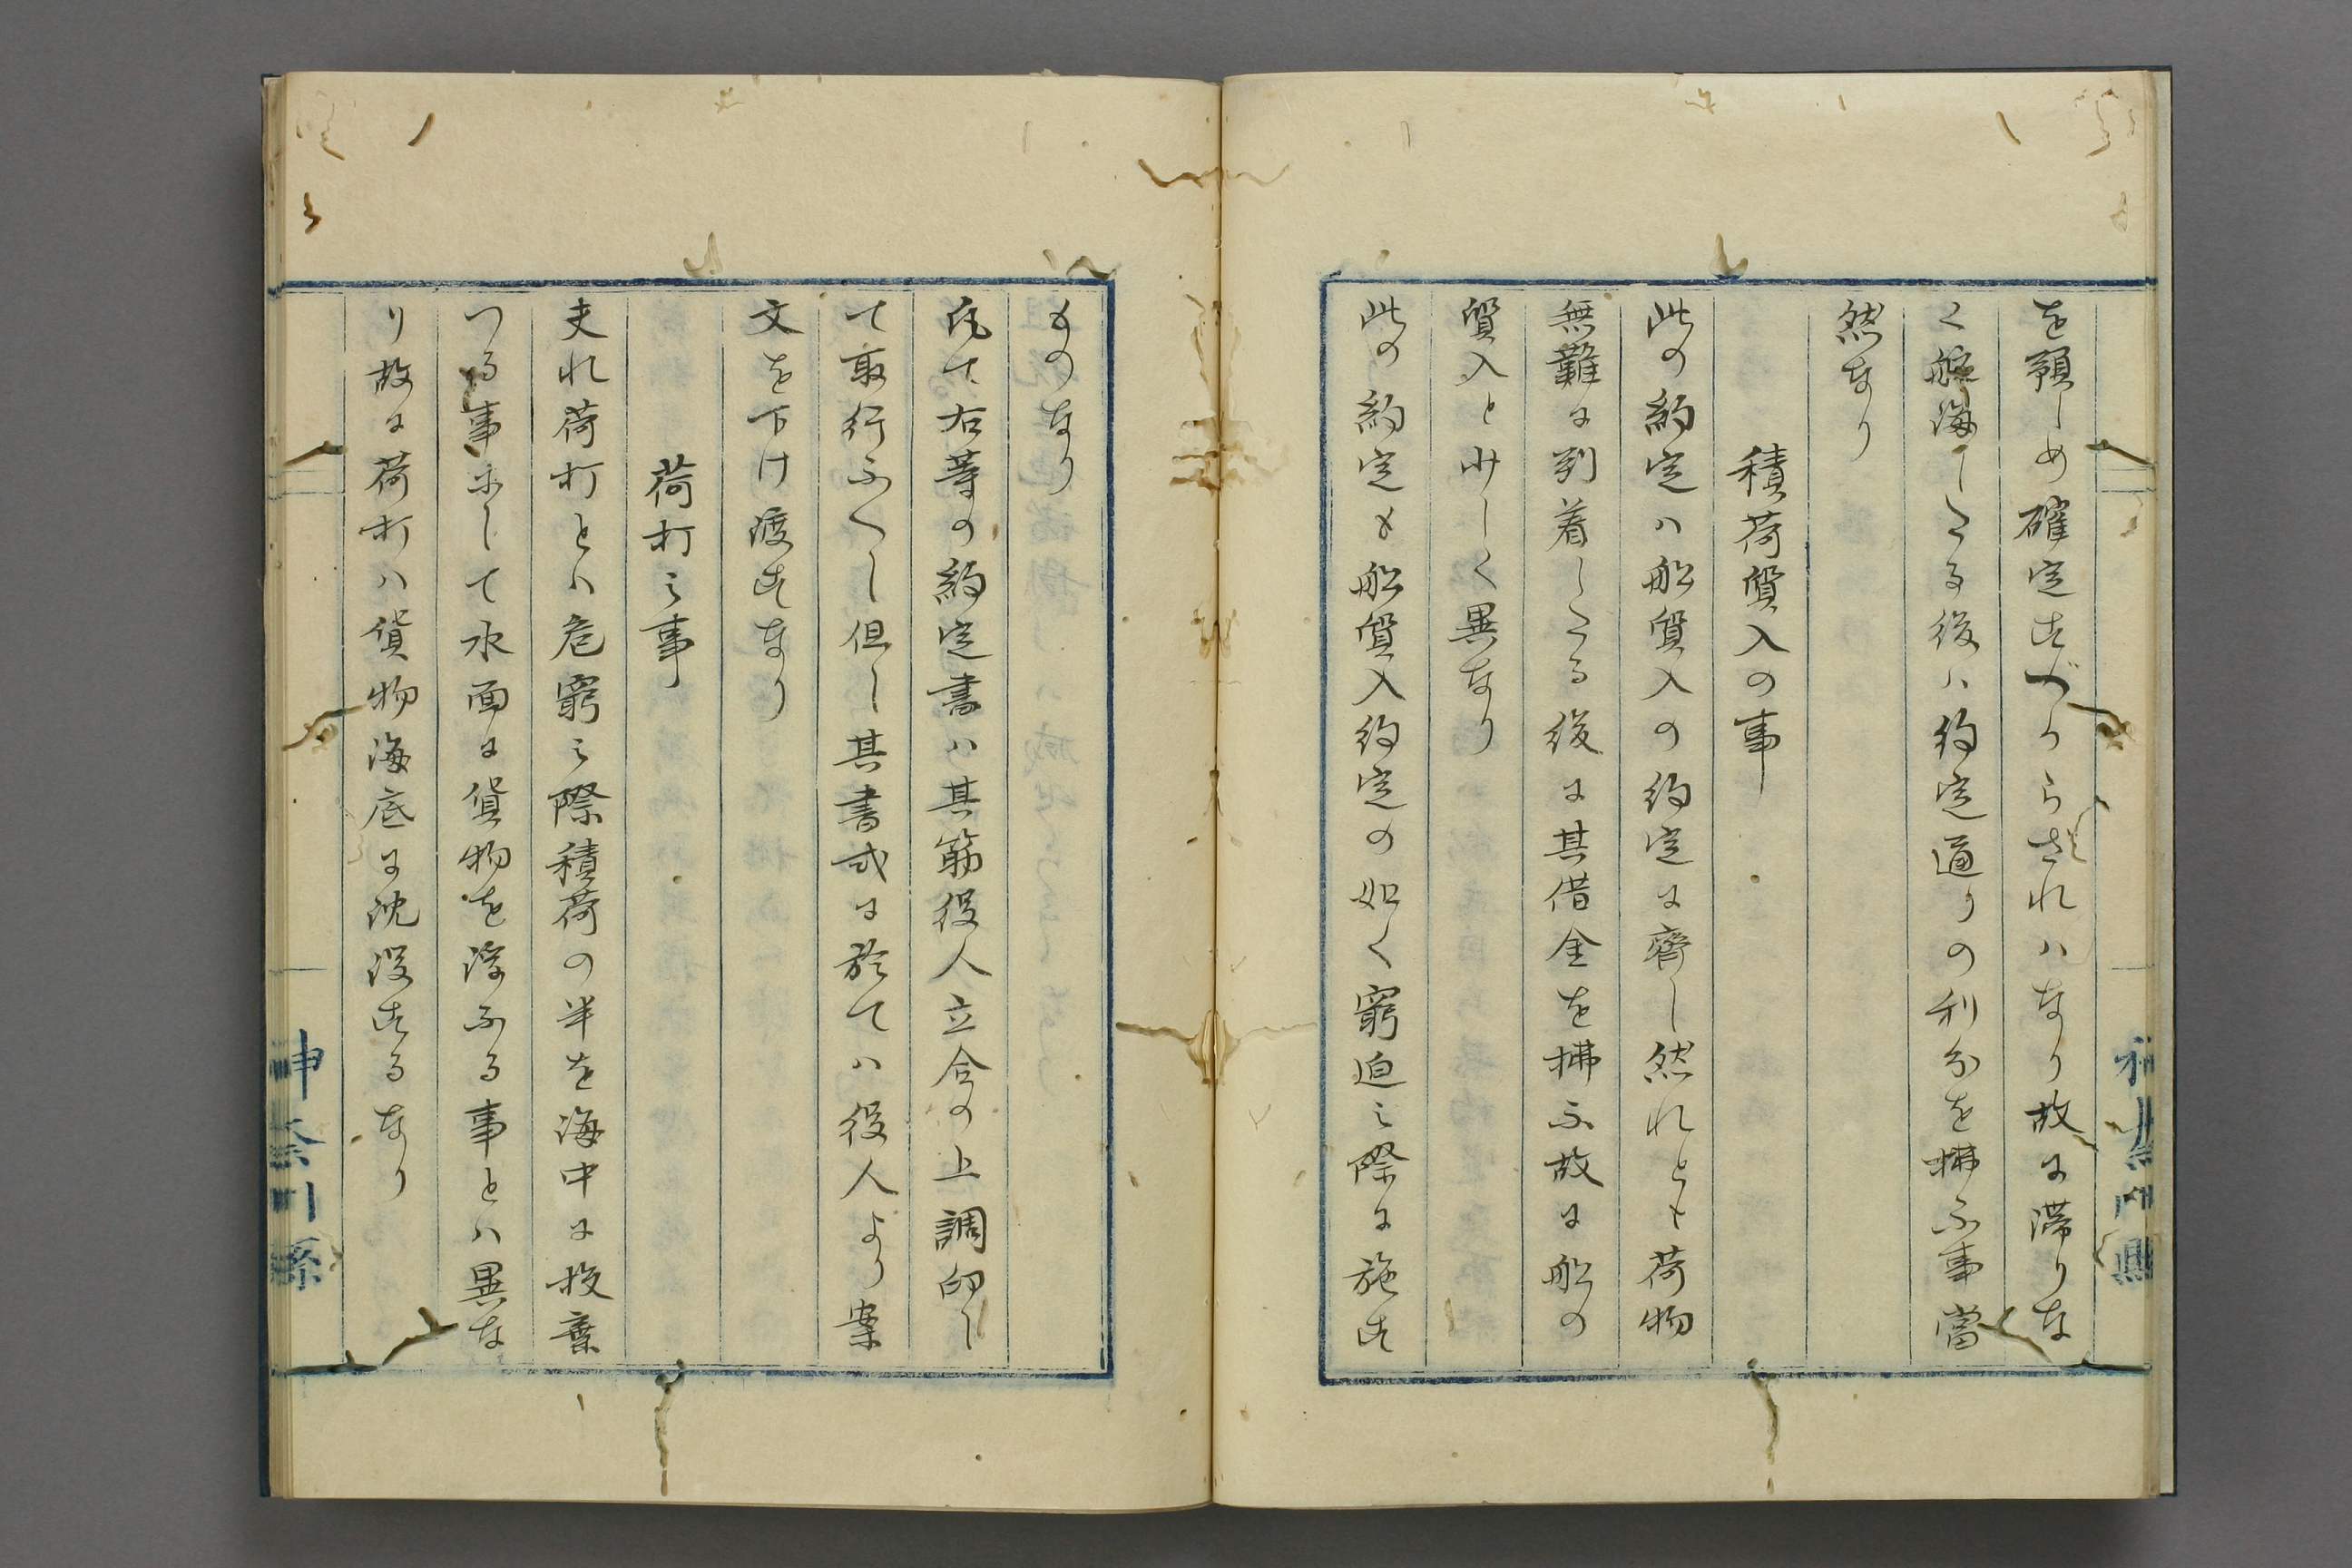 を預しめ確定すべからざれハなり故に滞りな
く航海したる後ハ約定通りの利分を拂ふ事當
然なり
積荷質入の事
此の約定ハ船質入の約定に齊し然れとも荷物
無難に到着したる後に其借金を拂ふ故に船の
質入と少しく異なり
此の約定も船質入約定の如く窮迫之際に施す
ものなり
凡て右等の約定書ハ其筋役人立合の上調印し
て取行ふへし但し其書式に於てハ役人より案
文を下け渡すなり
荷打之事
夫れ荷打とハ危窮之際積荷の半を海中に投棄
つる事にして水面に貨物を浮ふる事とハ異な
り故に荷打ハ貨物海底に沈没するなり
神奈川縣